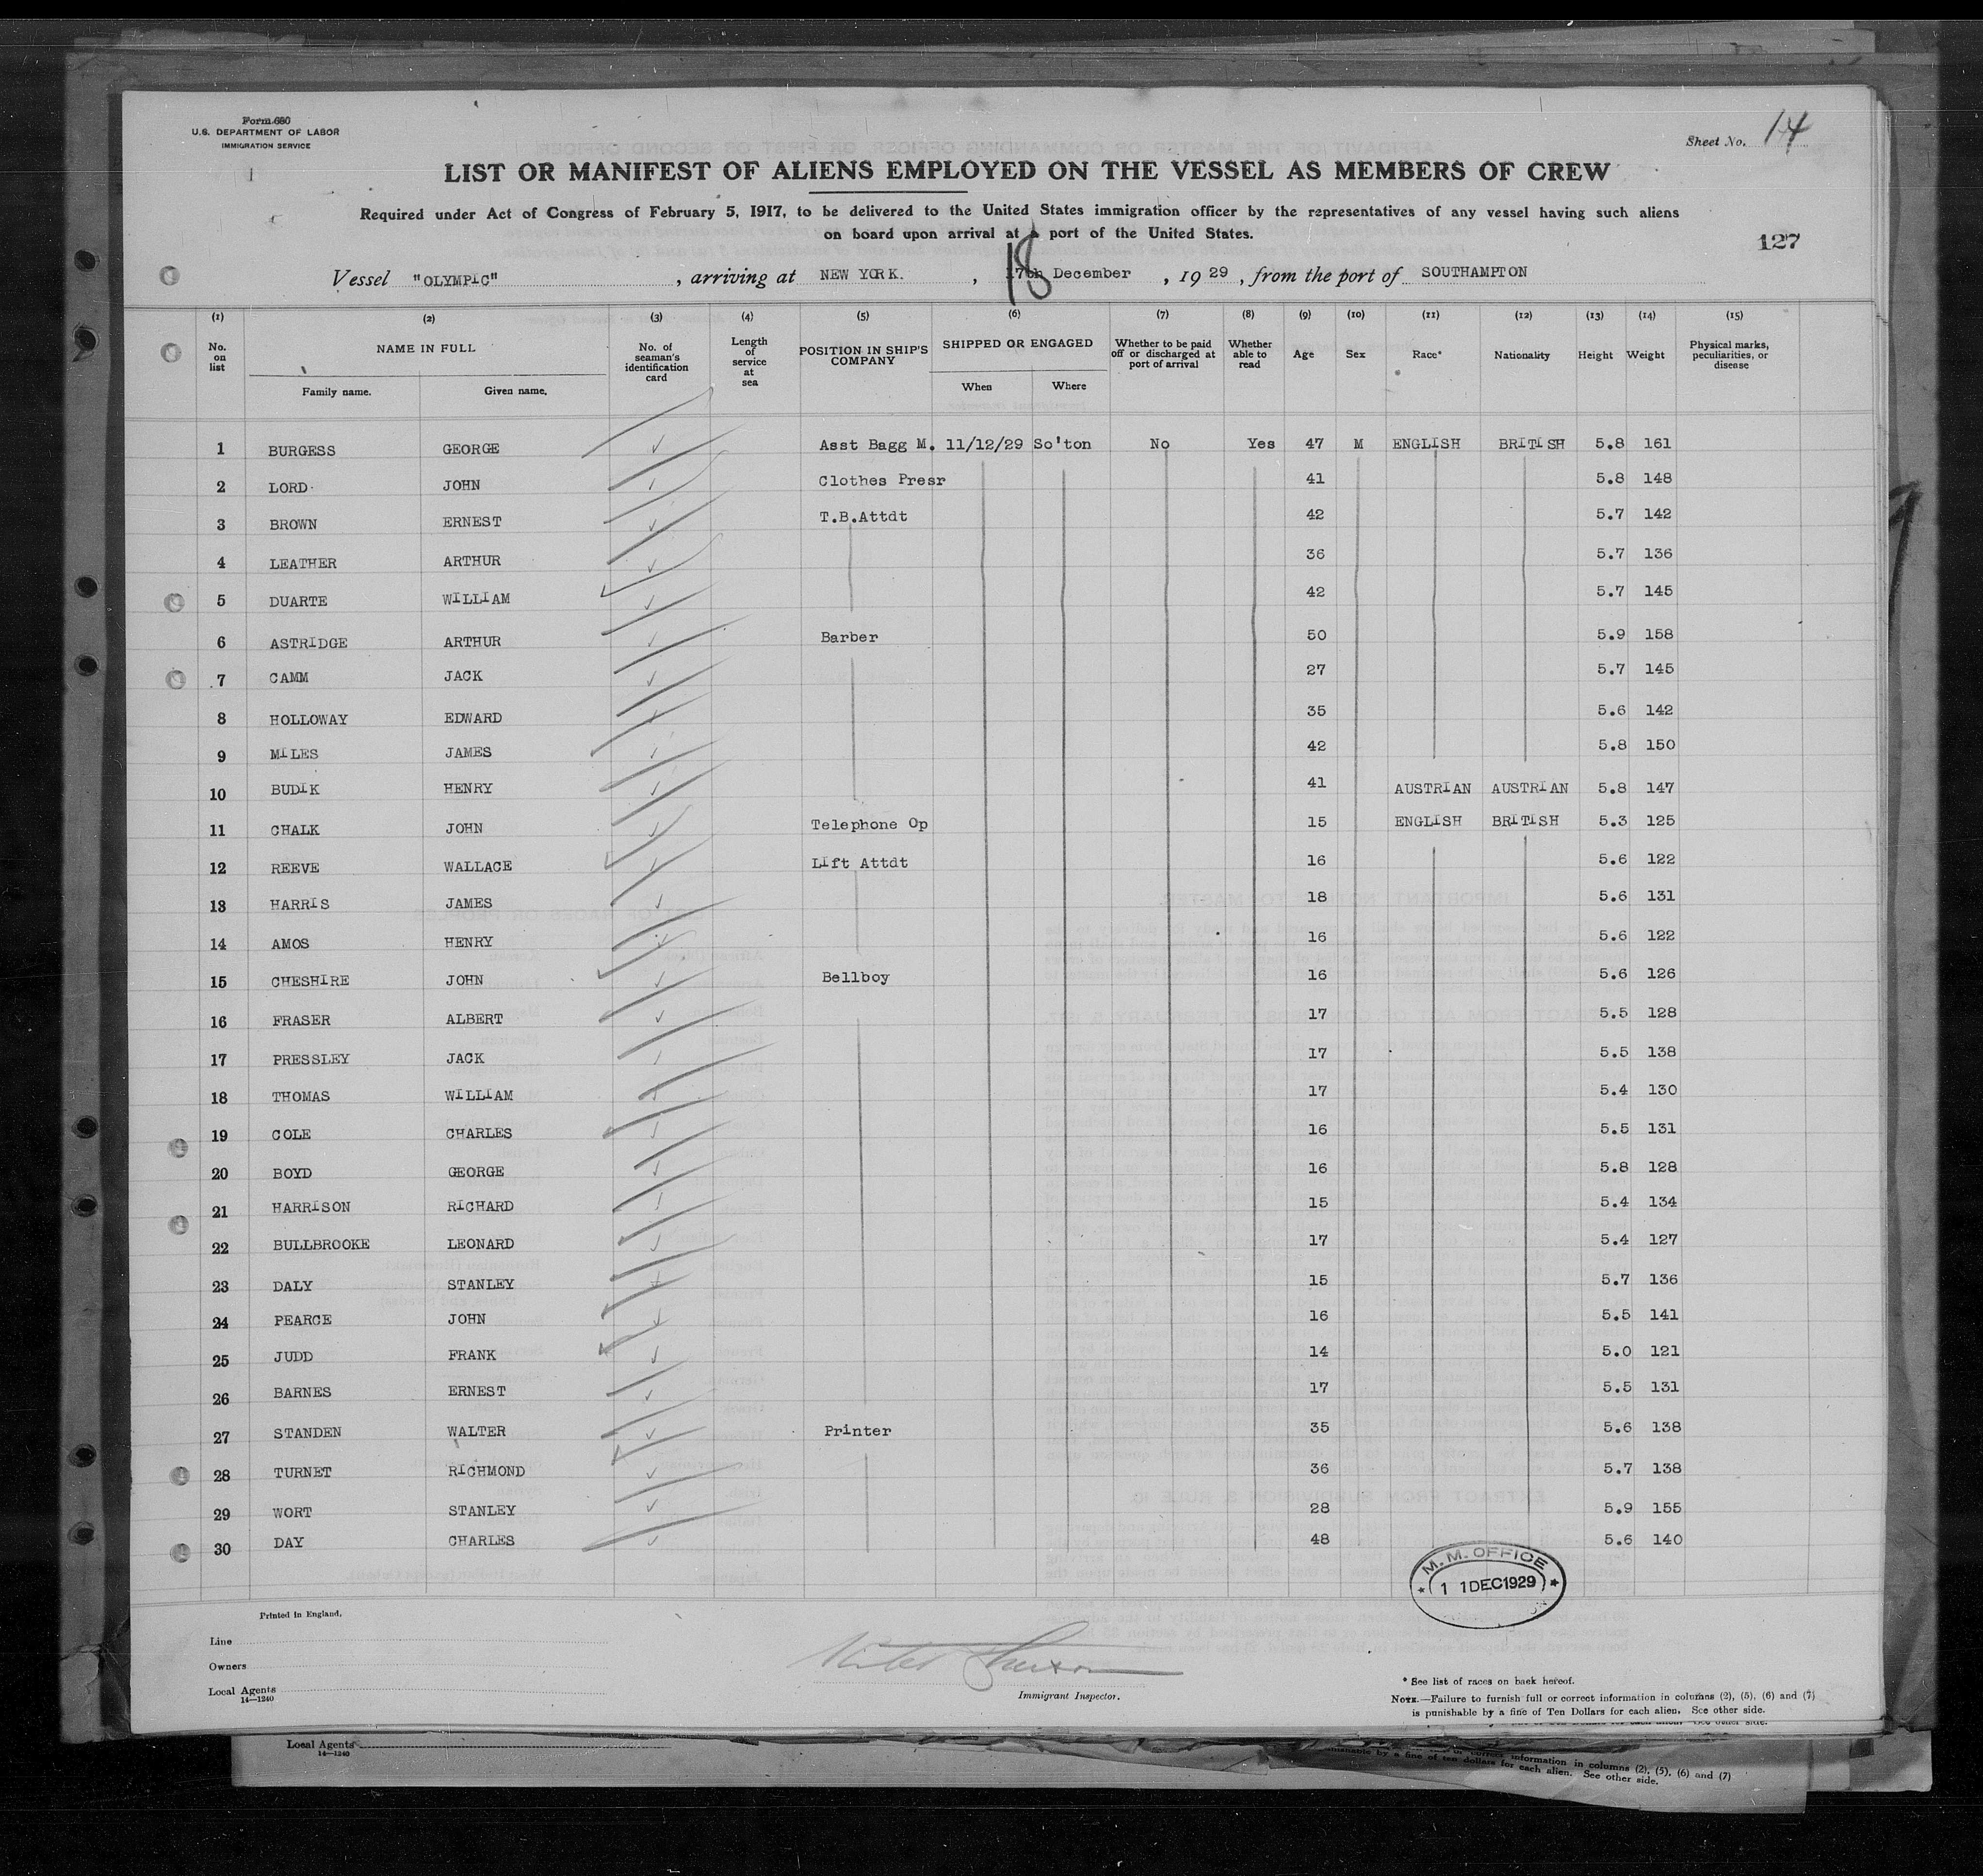 Form 680
U.S. DEPARTMENT OF LABOR
IMMIGRATION SERVICE
Sheet No. 14
LIST OR MANIFEST OF ALIENS EMPLOYED ON THE VESSEL AS MEMBERS OF CREW
Required under Act of Congress of February 5, 1917, to be delivered to the United States immigration officer by the representatives of any vessel having such aliens
on board upon arrival at a port of the United States.
127
Vessel "OLYMPIC", arriving at NEW YORK., 18 17th December, 1929, from the port of SOUTHAMPTON
(1) (2) (3) (4) (5) (6) (7) (8) (9) (10) (11) (12) (13) (14) (15)
No. on list NAME IN FULL Family name. Given name. No. of seaman's identification card Length of service at sea POSITION IN SHIP'S COMPANY SHIPPED OR ENGAGED When Where Whether to be paid off or discharged at port of arrival Whether able to read Age Sex Race* Nationality Height Weight Physical marks, peculiarities, or disease
1 BURGESS GEORGE Asst Bagg M. 11/12/29 So'ton No Yes 47 M ENGLISH BRITISH 5.8 161
2 LORD JOHN Clothes Presr 41 5.8 148
3 BROWN ERNEST T.B.Attdt 42 5.7 142
4 LEATHER ARTHUR 36 5.7 136
5 DUARTE WILLIAM 42 5.7 145
6 ASTRIDGE ARTHUR Barber 50 5.9 158
7 CAMM JACK 27 5.7 145
8 HOLLOWAY EDWARD 35 5.6 142
9 MILES JAMES 42 5.8 150
10 BUDIK HENRY 41 AUSTRIAN AUSTRIAN 5.8 147
11 CHALK JOHN Telephone Op 15 ENGLISH BRITISH 5.3 125
12 REEVE WALLACE Lift Attdt 16 5.6 122
13 HARRIS JAMES 18 5.6 131
14 AMOS HENRY 16 5.6 122
15 CHESHIRE JOHN Bellboy 16 5.6 126
16 FRASER ALBERT 17 5.5 128
17 PRESSLEY JACK 17 5.5 138
18 THOMAS WILLIAM 17 5.4 130
19 COLE CHARLES 16 5.5 131
20 BOYD GEORGE 16 5.8 128
21 HARRISON RICHARD 15 5.4 134
22 BULLBROOKE LEONARD 17 5.4 127
23 DALY STANLEY 15 5.7 136
24 PEARCE JOHN 16 5.5 141
25 JUDD FRANK 14 5.0 121
26 BARNES ERNEST 17 5.5 131
27 STANDEN WALTER Printer 35 5.6 138
28 TURNET RICHMOND 36 5.7 138
29 WORT STANLEY 28 5.9 155
30 DAY CHARLES 48 5.6 140
M.M. OFFICE
11 DEC 1929
Printed in England.
Line
Owners
Local Agents
14—1240
Immigrant Inspector.
* See list of races on back hereof.
NOTE.—Failure to furnish full or correct information in columns (2), (5), (6) and (7)
is punishable by a fine of Ten Dollars for each alien. See other side.
Local Agents
14—1240
correct information in columns (2), (5), (6) and (7)
by a fine of ten dollars for each alien. See other side.